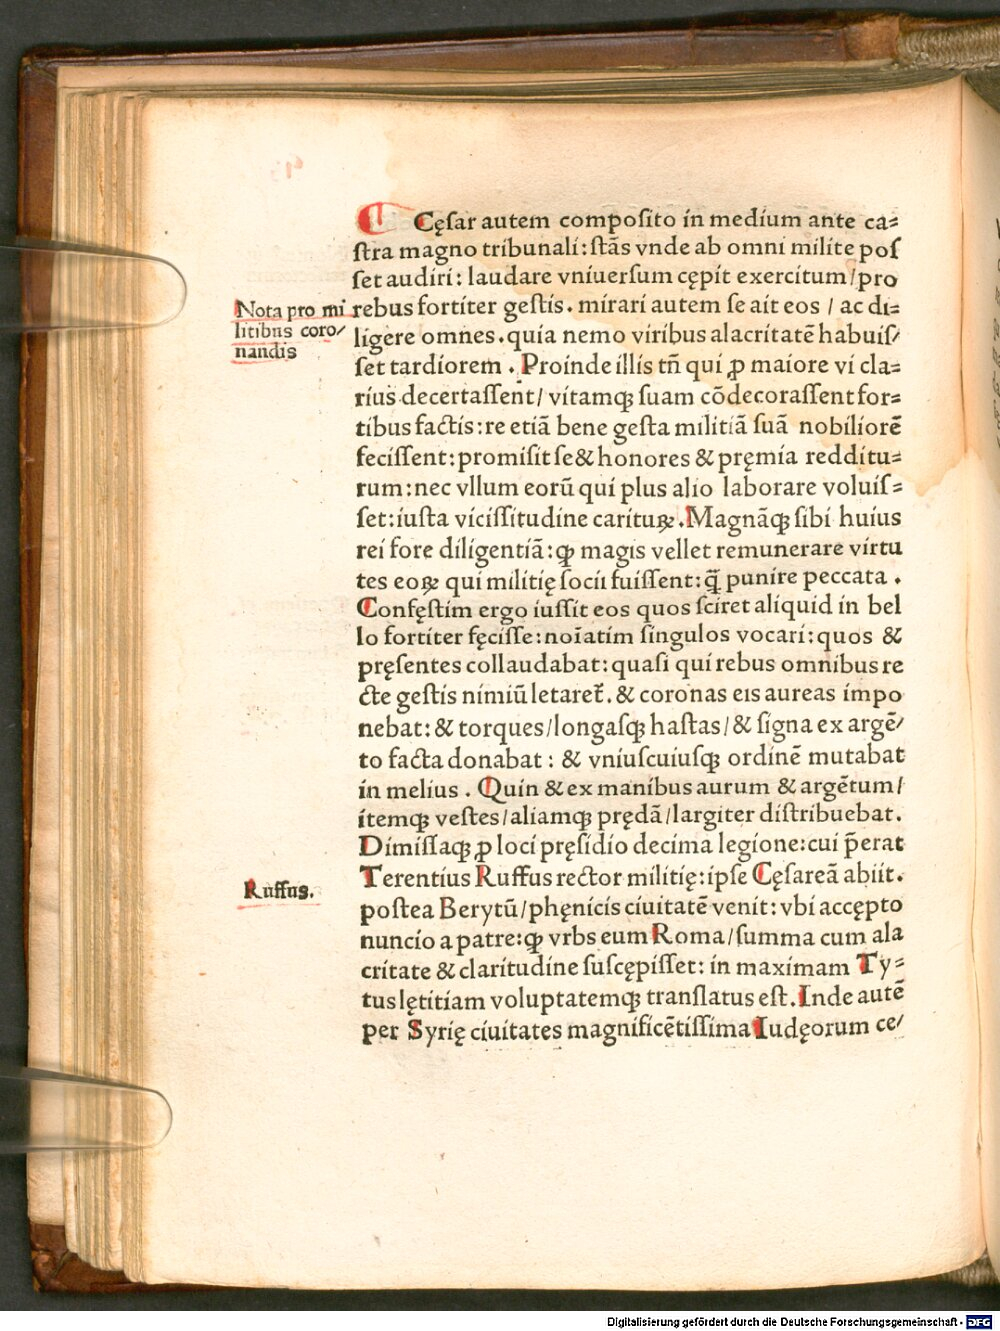 Cęſar autem compoſito in medium ante ca⸗
ſtra magno tribunali:ſtãs vnde ab omni milite poſ
ſet audiri: laudare vniuerſum cępit exercitum/pro
rebus fortiter geſtis. mirari autem ſe ait eos / ac di⸗
ligere omnes.quia nemo viribus alacritatẽ habuiſ/
ſet tardiorem . Proinde illis tñ qui ꝓ maiore vi cla⸗
rius decertaſſent/ vitamqꝫ ſuam cõdecoraſſent for⸗
tibus factis:re etiã bene geſta militiã ſuã nobiliorẽ
feciſſent:promiſit ſe & honores & pręmia redditu⸗
rum:nec vllum eorũ qui plus alio laborare voluiſ⸗
ſet:iuſta viciſſitudine carituꝝ.Magnãqꝫ ſibi huius
rei fore diligentiã:ꝙ magis vellet remunerare virtu
tes eoꝝ qui militię ſocii fuiſſent:q̃ punire peccata .
Confęſtim ergo iuſſit eos quos ſciret aliquid in bel
lo fortiter fęciſſe:noĩatim ſingulos vocari:quos &
pręſentes collaudabat:quaſi qui rebus omnibus re
cte geſtis nimiũ letaret̃. & coronas eis aureas impo
nebat: & torques/longaſqꝫ haſtas/& ſigna ex argẽ/
to facta donabat : & vniuſcuiuſqꝫ ordinẽ mutabat
in melius . Quin & ex manibus aurum & argẽtum/
itemqꝫ veſtes/aliamqꝫ prędã/largiter diſtribuebat.
Dimiſſaqꝫ ꝓ loci pręſidio decima legione:cui p̃erat
Terentius Ruffus rector militię:ipſe Cęſareã abiit.
poſtea Berytũ/phęnicis ciuitatẽ venit:vbi accępto
nuncio a patre:ꝙ vrbs eum Roma/ſumma cum ala
critate & claritudine ſuſcępiſſet: in maximam Ty⸗
tus lętitiam voluptatemqꝫ tranſlatus eſt.Inde autẽ
per Syrię ciuitates magnificẽtiſſima Iudęorum ce/
Nota pro mi
litibus coro/
nandis
Ruffus.
Digitalisierung gefördert durch die Deutsche Forschungsgemeinschaft - DFG